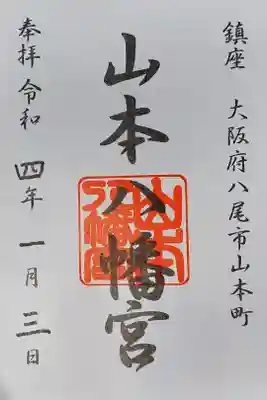 鎮座 大阪府八尾市山本町
山本八幡宮
奉拝 令和四年一月三日